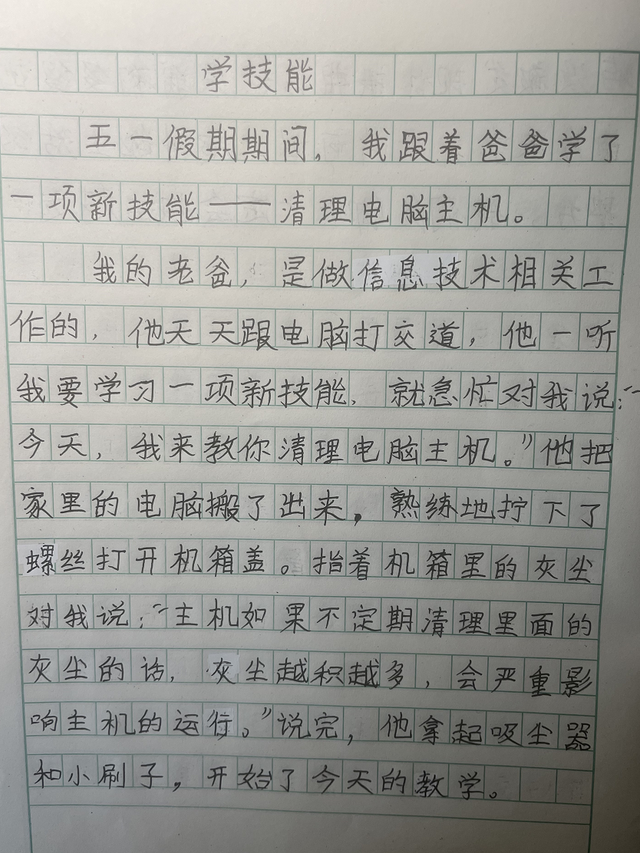 学技能
五一假期期间，我跟着爸爸学了
一项新技能——清理电脑主机。
我的老爸，是做信息技术相关工
作的，他天天跟电脑打交道，他一听
我要学习一项新技能，就急忙对我说：“
今天，我来教你清理电脑主机。”他把
家里的电脑搬了出来，熟练地拧下了
螺丝打开机箱盖。指着机箱里的灰尘
对我说：“主机如果不定期清理里面的
灰尘的话，灰尘越积越多，会严重影
响主机的运行。”说完，他拿起吸尘器
和小刷子，开始了今天的教学。